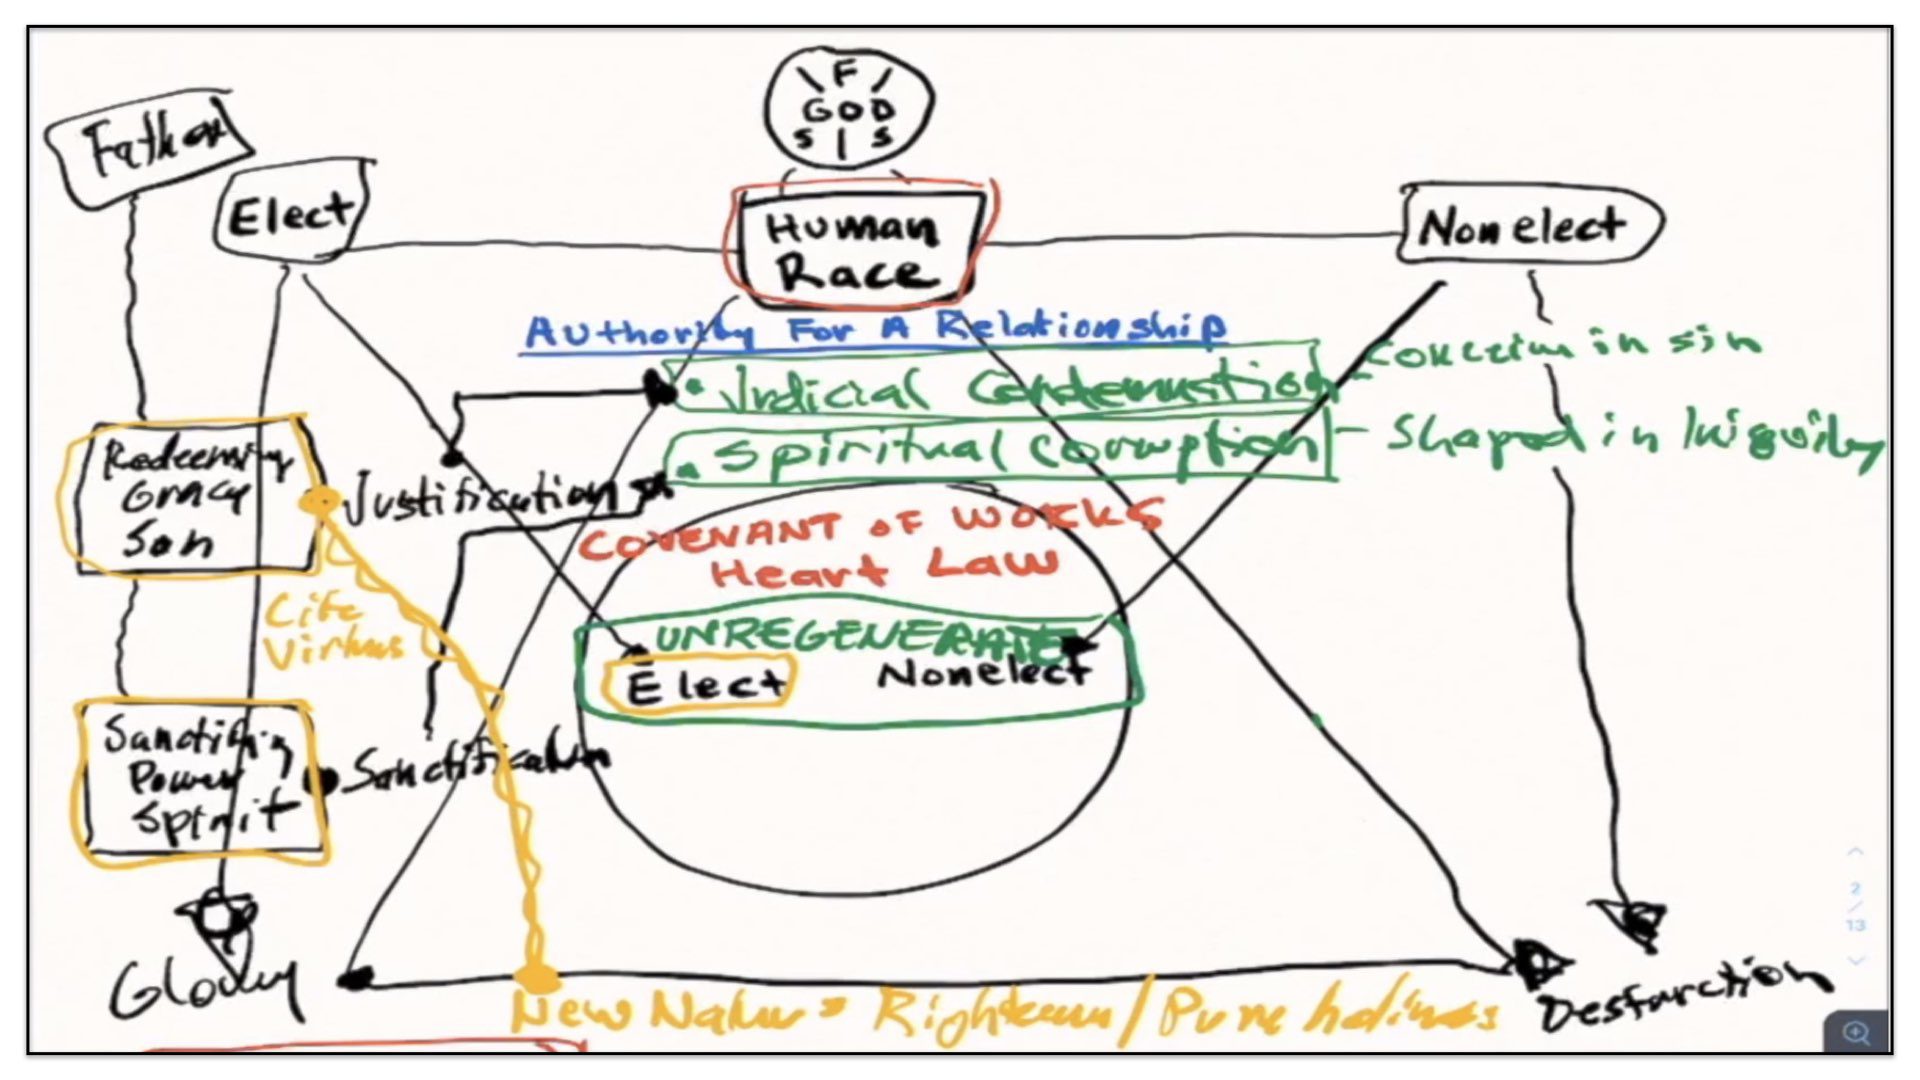 \ F /
GOD
S | S
Father
Elect
Human
Race
Nonelect
Authority For A Relationship
• Judicial Condemnation - in sin
• Spiritual Corruption - Shaped in
Redeeming
Grace
Son
Justification
COVENANT OF WORKS
Heart Law
Life
Virtues
UNREGENERATE
Elect Nonelect
Power
Spirit
Sanctification
Glory
New Nature = / Pure holiness
Destarction
2
/
13